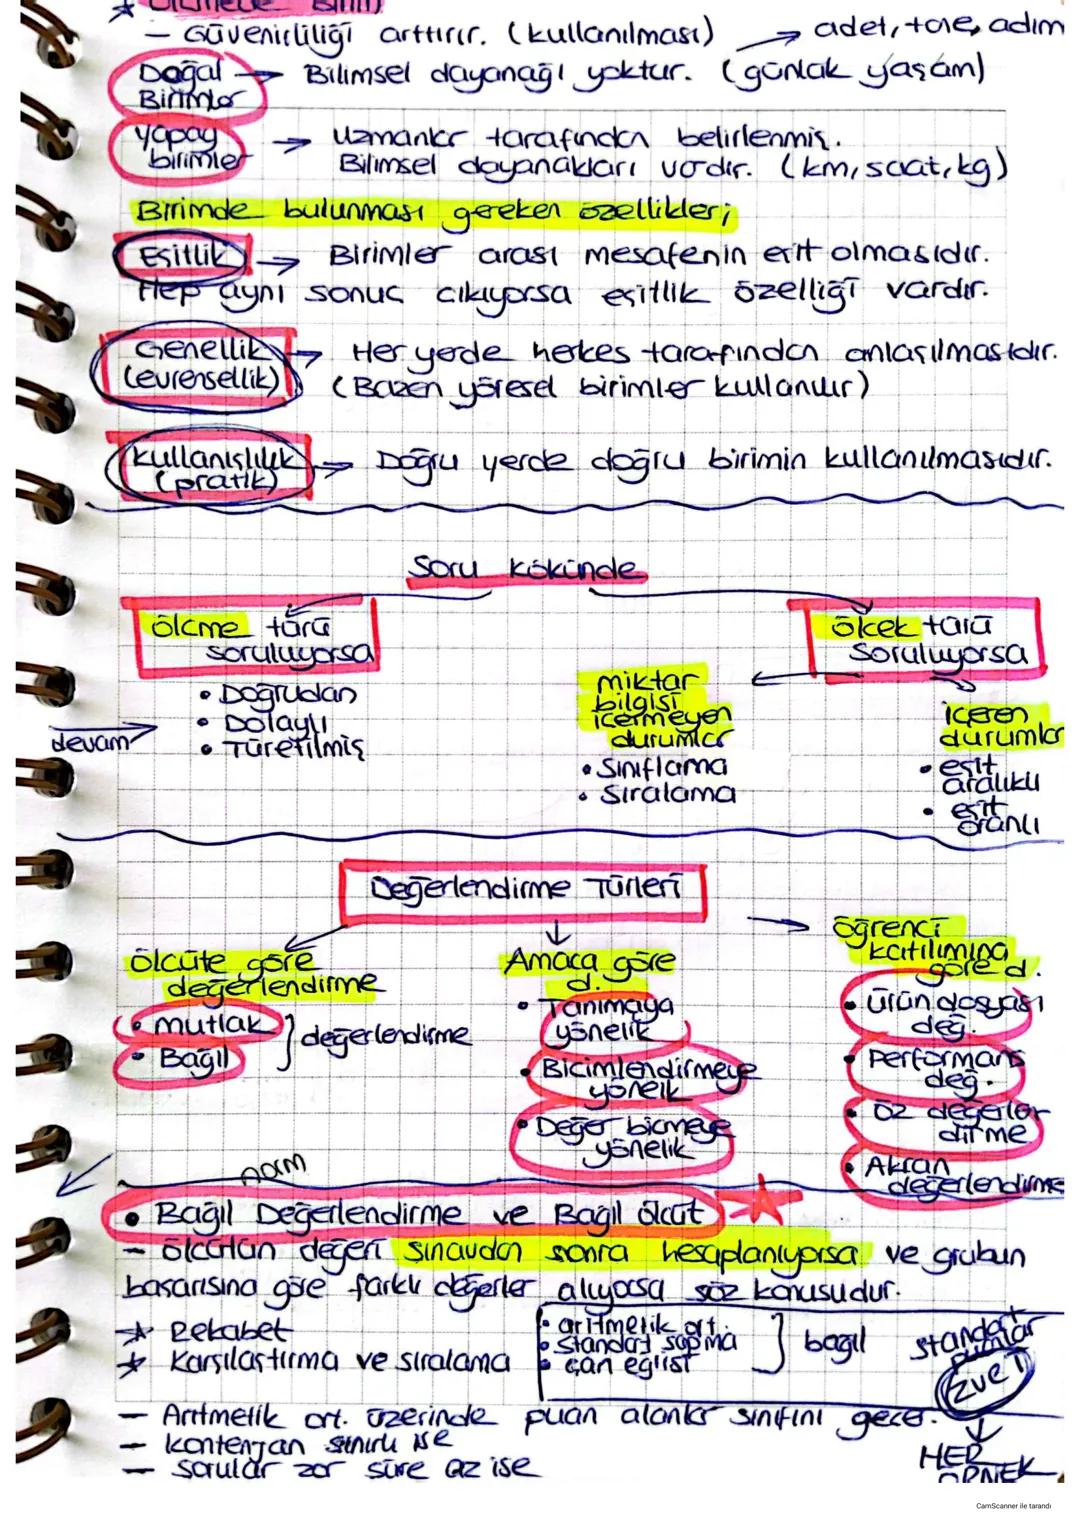 * Ölçmede Birim
– Güvenirliliği arttırır. (kullanılması) → adet, tane, adım
Doğal Birimler → Bilimsel dayanağı yoktur. (günlük yaşam)
Yapay birimler → Uzmanlar tarafından belirlenmiş.
Bilimsel dayanakları vardır. (km, saat, kg)
Birimde bulunması gereken özellikler;
Eşitlik → Birimler arası mesafenin eşit olmasıdır.
Hep aynı sonuç çıkıyorsa eşitlik özelliği vardır.
Genellik (evrensellik) → Her yerde herkes tarafından anlaşılmasıdır.
(Bazen yöresel birimler kullanılır)
Kullanışlılık (pratik) → Doğru yerde doğru birimin kullanılmasıdır.
Soru kökünde
ölçme türü soruluyorsa
• Doğrudan
• Dolaylı
• Türetilmiş
devam →
ölçek türü soruluyorsa
miktar bilgisi içermeyen durumlar
• Sınıflama
• Sıralama
içeren durumlar
• eşit aralıklı
• eşit oranlı
Değerlendirme Türleri
ölçüte göre değerlendirme
• mutlak
• Bağıl
} değerlendirme
Amaca göre d.
• Tanımaya yönelik
• Biçimlendirmeye yönelik
• Değer biçmeye yönelik
öğrenci katılımına göre d.
• ürün dosyası değ.
• Performans değ.
• öz değerlendirme
• Akran değerlendirme
• Bağıl Değerlendirme ve Bağıl ölçüt
– ölçütün değeri sınavdan sonra hesaplanıyorsa ve grubun
başarısına göre farklı değerler alıyorsa söz konusudur.
* Rekabet
* Karşılaştırma ve sıralama
• aritmetik ort.
• standart sapma
• çan eğrisi
} bağıl
standart puanlar
Z ve T
↓
HER
ÖRNEK
– Aritmetik ort. üzerinde puan alanlar sınıfını geçer.
– kontenjan sınırlı ise
– sorular zor süre az ise
CamScanner ile tarandı